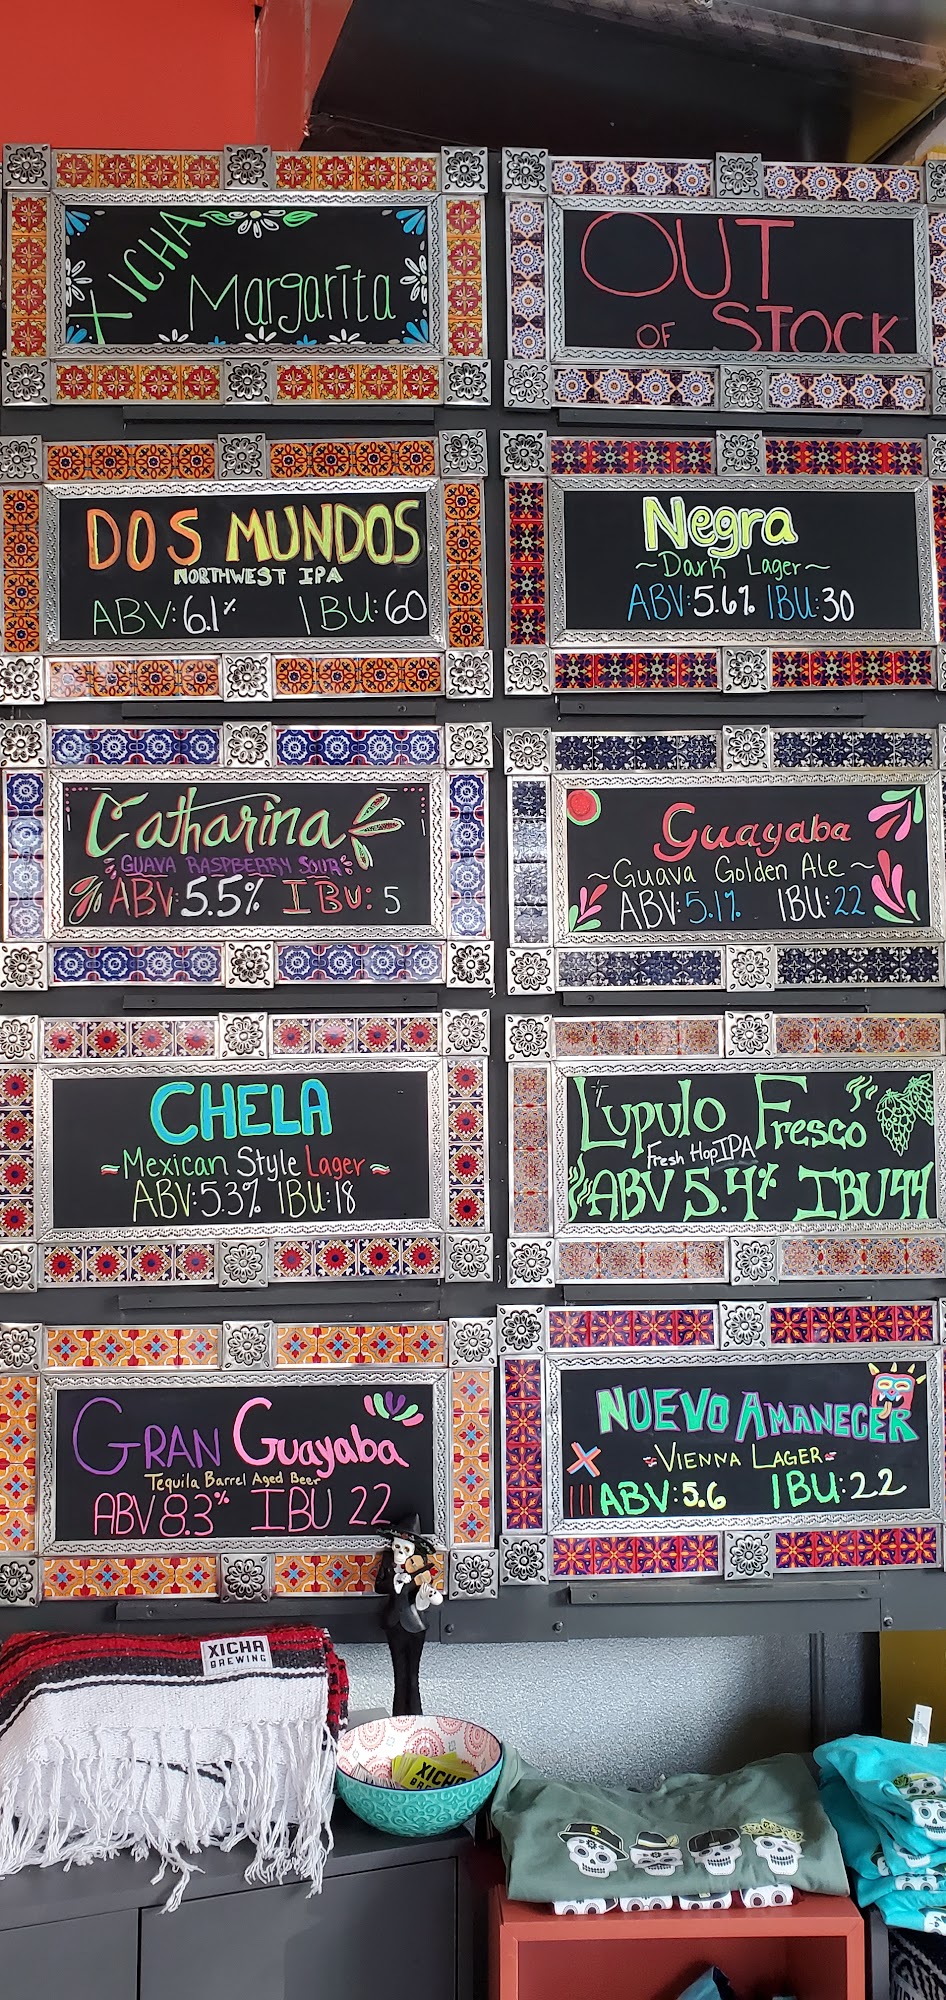 XICHA
Margarita
OUT
OF STOCK
DOS MUNDOS
NORTHWEST IPA
ABV: 6.1% IBU: 60
Negra
~Dark Lager~
ABV: 5.6% IBU: 30
Catharina
GUAVA RASPBERRY SOUR
ABV: 5.5% IBU: 5
Guayaba
~Guava Golden Ale~
ABV: 5.1% IBU: 22
CHELA
~Mexican Style Lager~
ABV: 5.3% IBU: 18
Lupulo Fresco
Fresh Hop IPA
ABV 5.4% IBU 44
GRAN Guayaba
Tequila Barrel Aged Beer
ABV 8.3% IBU 22
NUEVO AMANECER
~VIENNA LAGER~
ABV: 5.6 IBU: 22
XICHA
BREWING
XICHA